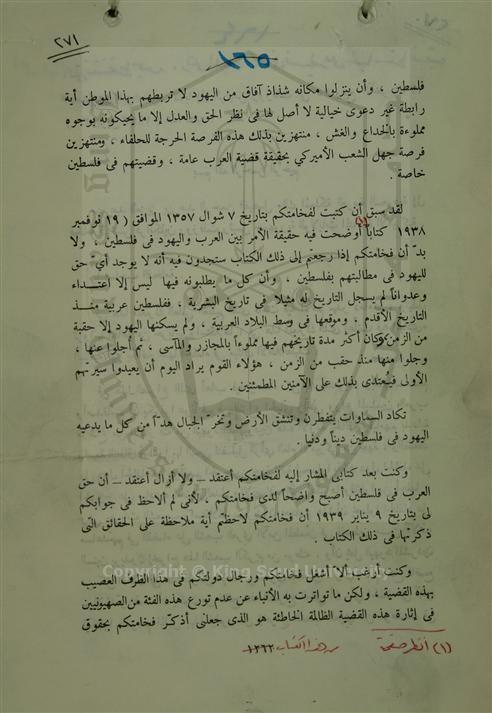 ٢٧١
فلسطين ، وأن ينزلوا مكانه شذاذ آفاق من اليهود لا تربطهم بهذا الموطن أية
رابطة غير دعوى خيالية لا أصل لها فى نظر الحق والعدل إلا ما يحيكونه بوجوه
مملوءة بالخداع والغش ، منتهزين بذلك هذه الفرصة الحرجة للحلفاء ، ومنتهزين
فرصة جهل الشعب الأميركي بحقيقة قضية العرب عامة ، وقضيتهم فى فلسطين
خاصة .
لقد سبق أن كتبت لفخامتكم بتاريخ ٧ شوال ١٣٥٧ الموافق ( ١٩ نوفمبر
١٩٣٨ كتاباً (١) أوضحت فيه حقيقة الأمر بين العرب واليهود فى فلسطين ، ولا
بدّ أن فخامتكم إذا رجعتم إلى ذلك الكتاب ستجدون فيه أنه لا يوجد أيّ حق
لليهود فى مطالبتهم بفلسطين ، وأن كل ما يطلبونه فيها ليس إلا اعتـــداء
وعدواناً لم يسجل التاريخ له مثيلا فى تاريخ البشرية ، ففلسطين عربية منــذ
التاريخ الأقدم ، وموقعها فى وسط البلاد العربية ، ولم يسكنها اليهود إلا حقبة
من الزمن وكان أكثر مدة تاريخهم فيها مملوءاً بالمجازر والمآسى ، ثم أجلوا عنها ،
وجلوا منها منذ حقب من الزمن ، هؤلاء القوم يراد اليوم أن يعيدوا سيرتهم
الأولى فيُعتدى بذلك على الآمنين المطمئنين .
تكاد السماوات يتفطرن وتنشق الأرض وتخرّ الجبال هدّاً من كل ما يدعيه
اليهود فى فلسطين ديناً ودنيا .
وكنت بعد كتابى المشار إليه لفخامتكم أعتقد – ولا أزال أعتقد – أن حق
العرب فى فلسطين أصبح واضحاً لدى فخامتكم ، لأنى لم ألاحظ فى جوابكم
لى بتاريخ ٩ يناير ١٩٣٩ أن فخامتكم لاحظتم أية ملاحظة على الحقائق التى
ذكرتها فى ذلك الكتاب .
وكنت أرغب ألاّ أشغل فخامتكم ورجال دولتكم فى هذا الظرف العصيب
Copyright © King Saud University
بهذه القضية ، ولكن ما تواترت به الأنباء عن عدم تورع هذه الفئة من الصهيونيين
فى إثارة هذه القضية الظالمة الخاطئة هو الذى جعلنى أذكّر فخامتكم بحقوق
(١) أنظر صفحة من هذا الكتاب